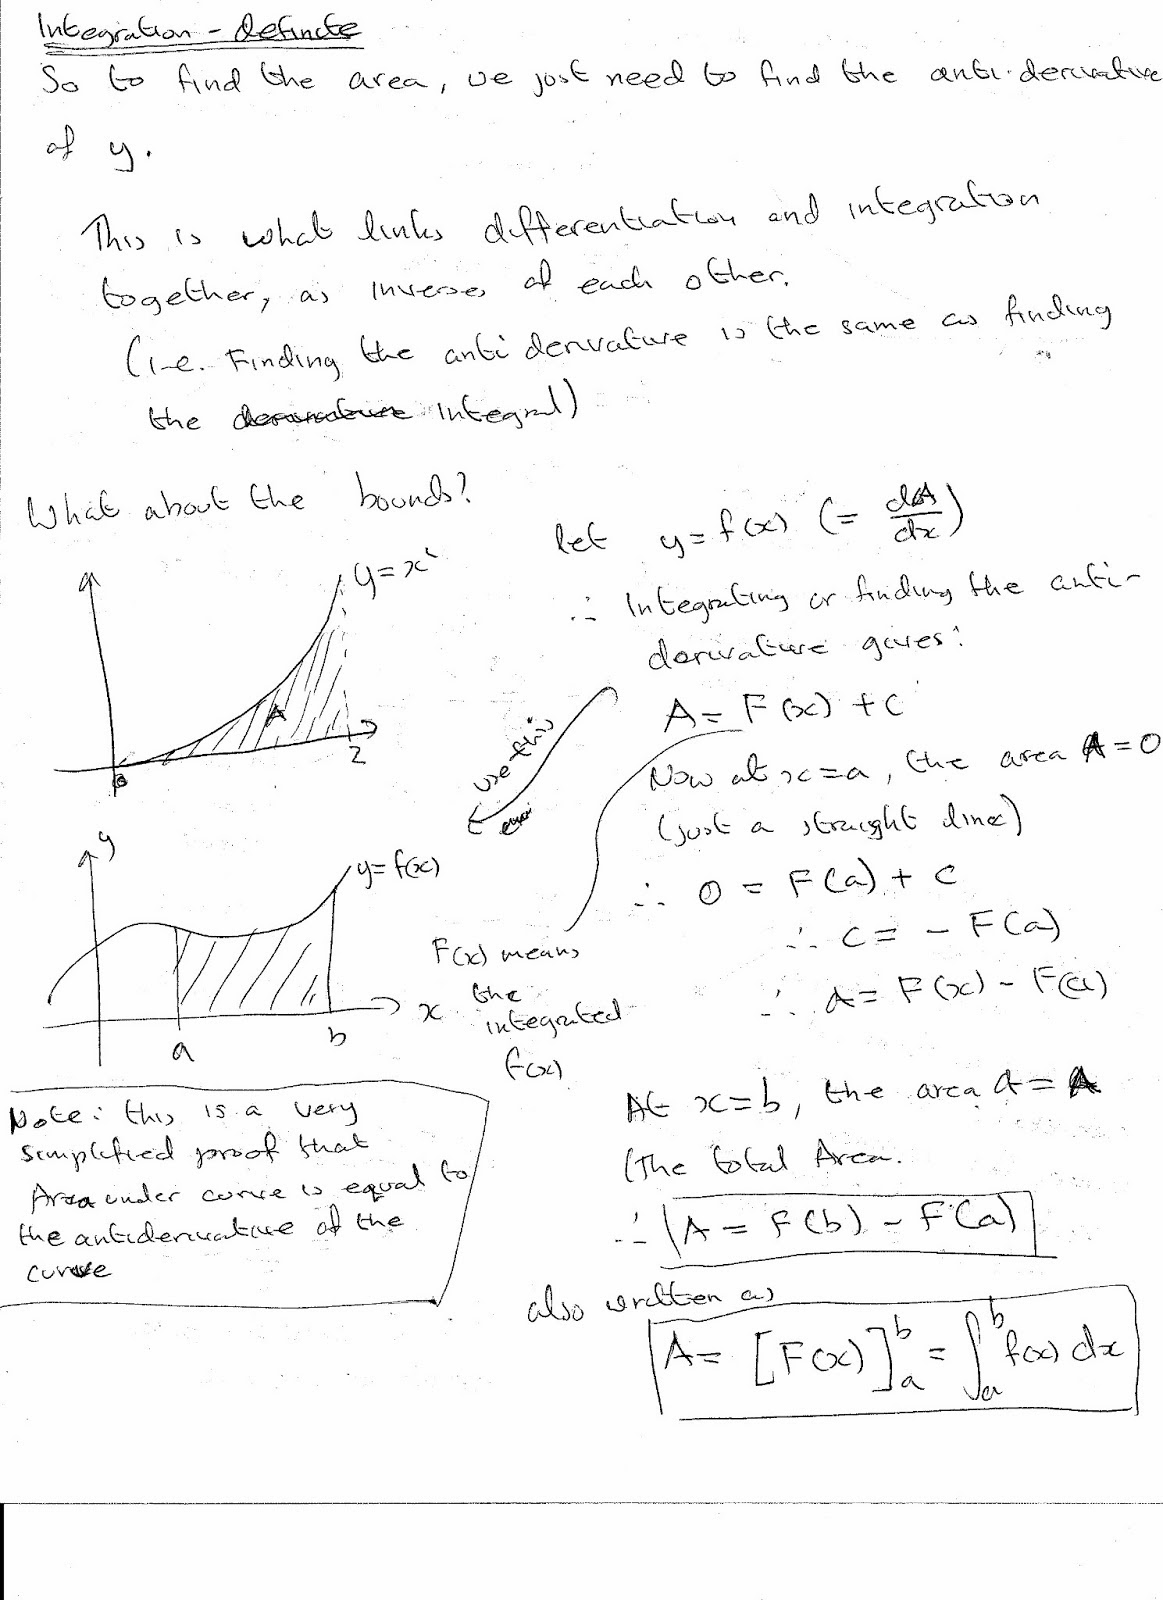 Integration - definite
So to find the area, we just need to find the anti-derivative
of y.
This is what links differentiation and integration
together, as inverses of each other.
(i.e. Finding the anti derivative is the same as finding
the derivative integral)
What about the bounds?
y=x²
A
0
2
y
y=f(x)
x
a
b
Note: this is a very
simplified proof that
Area under curve is equal to
the antiderivative of the
curve
let y=f(x) (= dA/dx)
∴ Integrating or finding the anti-
derivative gives:
A= F(x) +c
use this
Now at x=a, the area A=0
(just a straight line)
∴ 0 = F(a) + c
∴ c = - F(a)
∴ A= F(x) - F(a)
F(x) means
the
integrated
f(x)
At x=b, the area A = A
(The total Area.
∴ A = F(b) - F(a)
also written as
A= [F(x)]_a^b = ∫_a^b f(x) dx